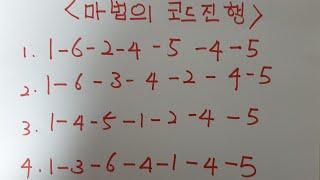 <마법의 코드진행>
1. 1-6-2-4-5 -4-5
2. 1-6-3-4-2-4-5
3. 1-4-5-1-2-4-5
4. 1-3-6-4-1-4-5